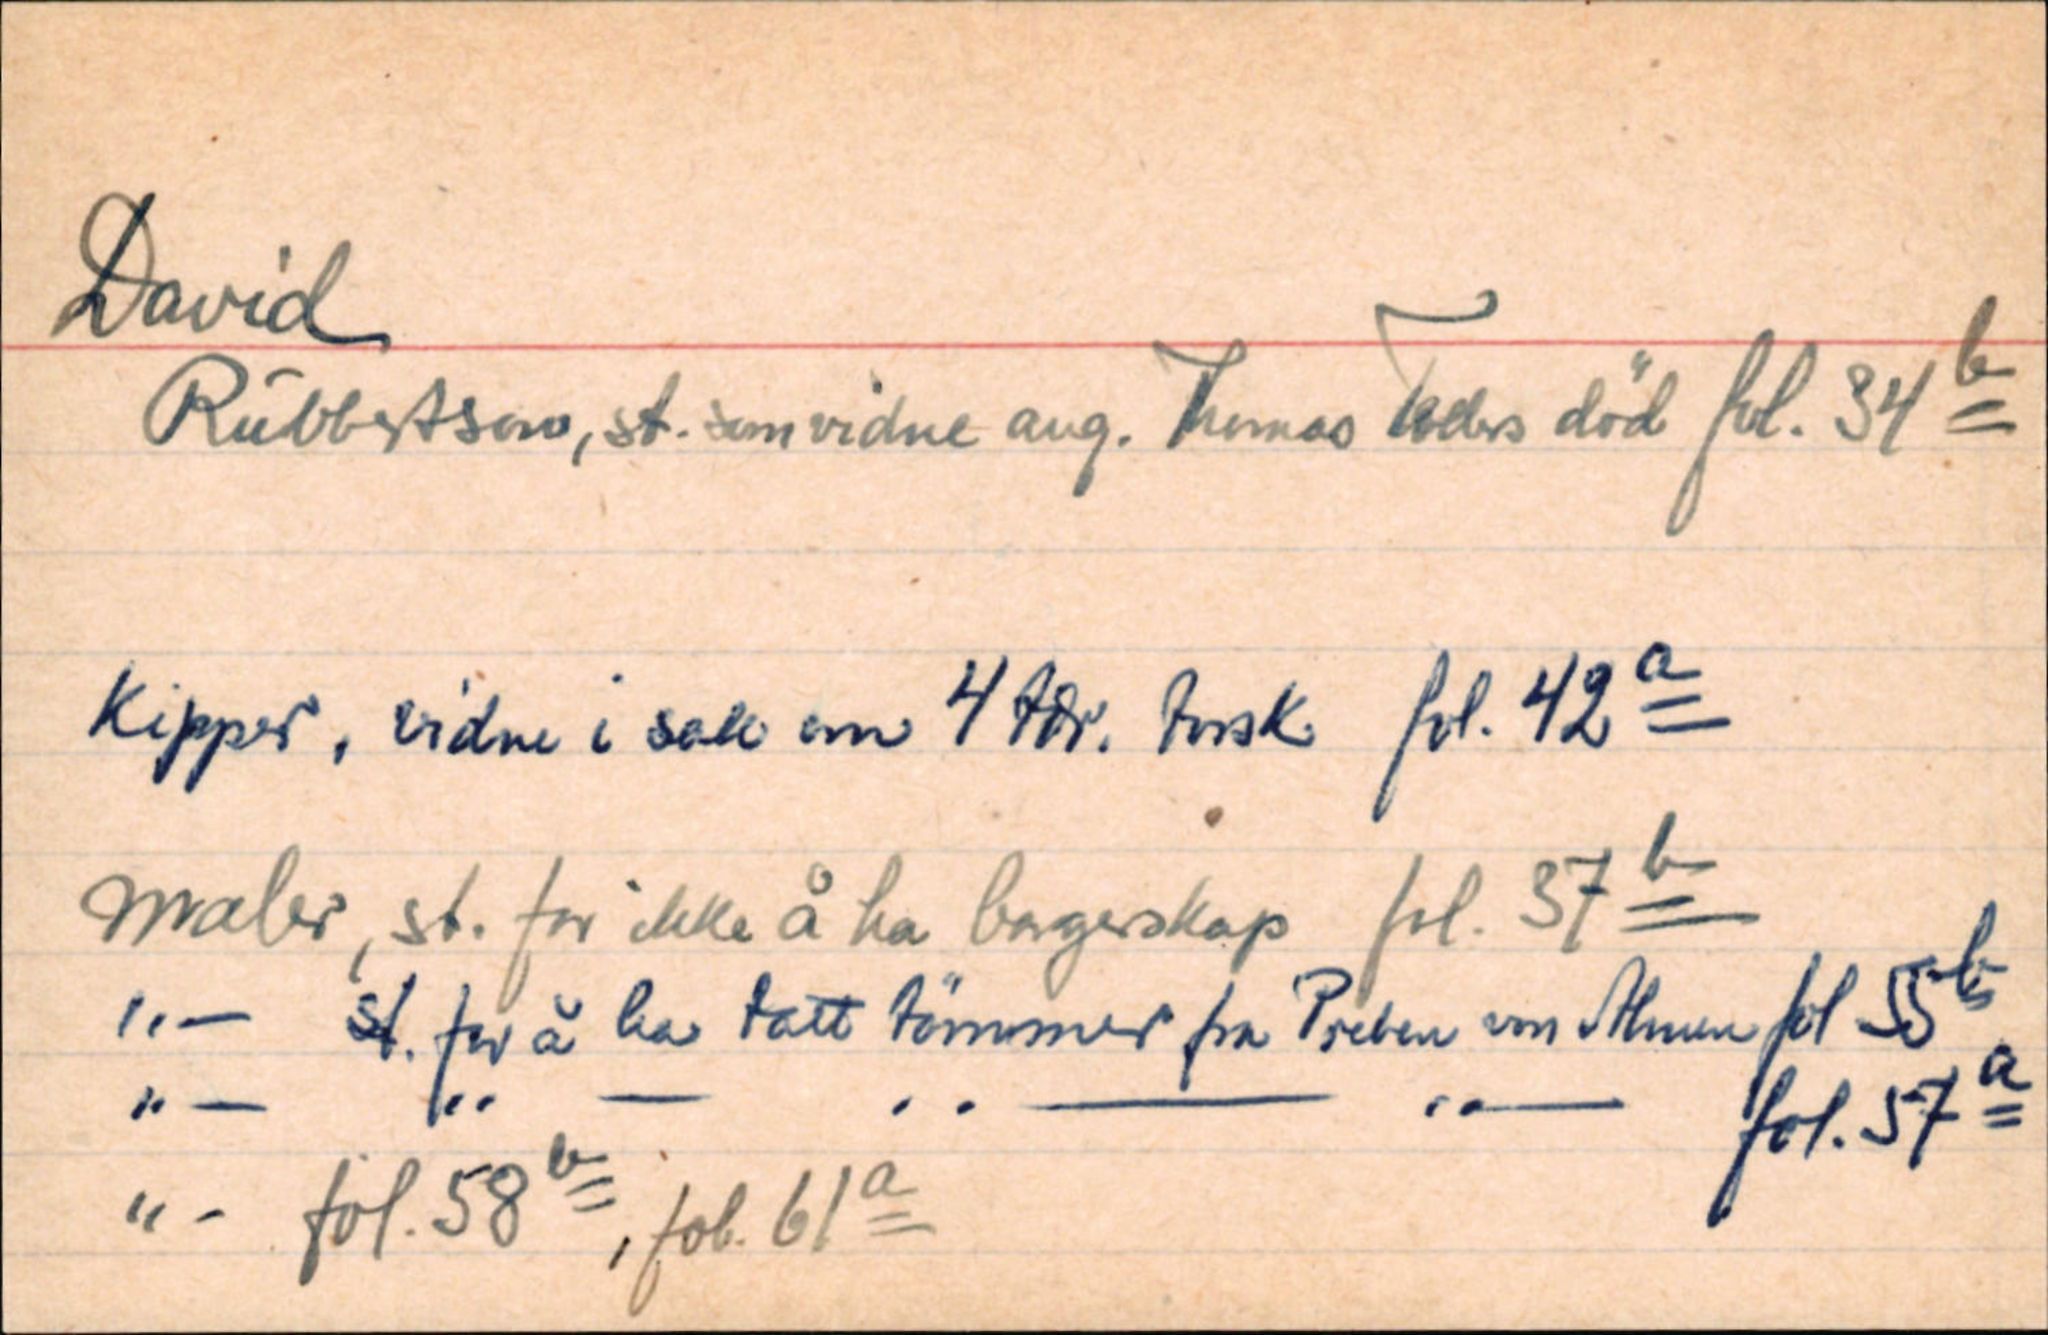 David
Rübbertson, st. som vidne ang. Thomas död fol. 34 b
Kipper, vidne i sak om 4 tdr. torsk fol. 42 a
Maler, st. for ikke å ha borgerskap fol. 37 b
"— st. for å ha tatt tömmer fra Preben von Ahnen fol 55 b
"— " — " — " — fol. 57 a
" - fol. 58 b, fol. 61 a